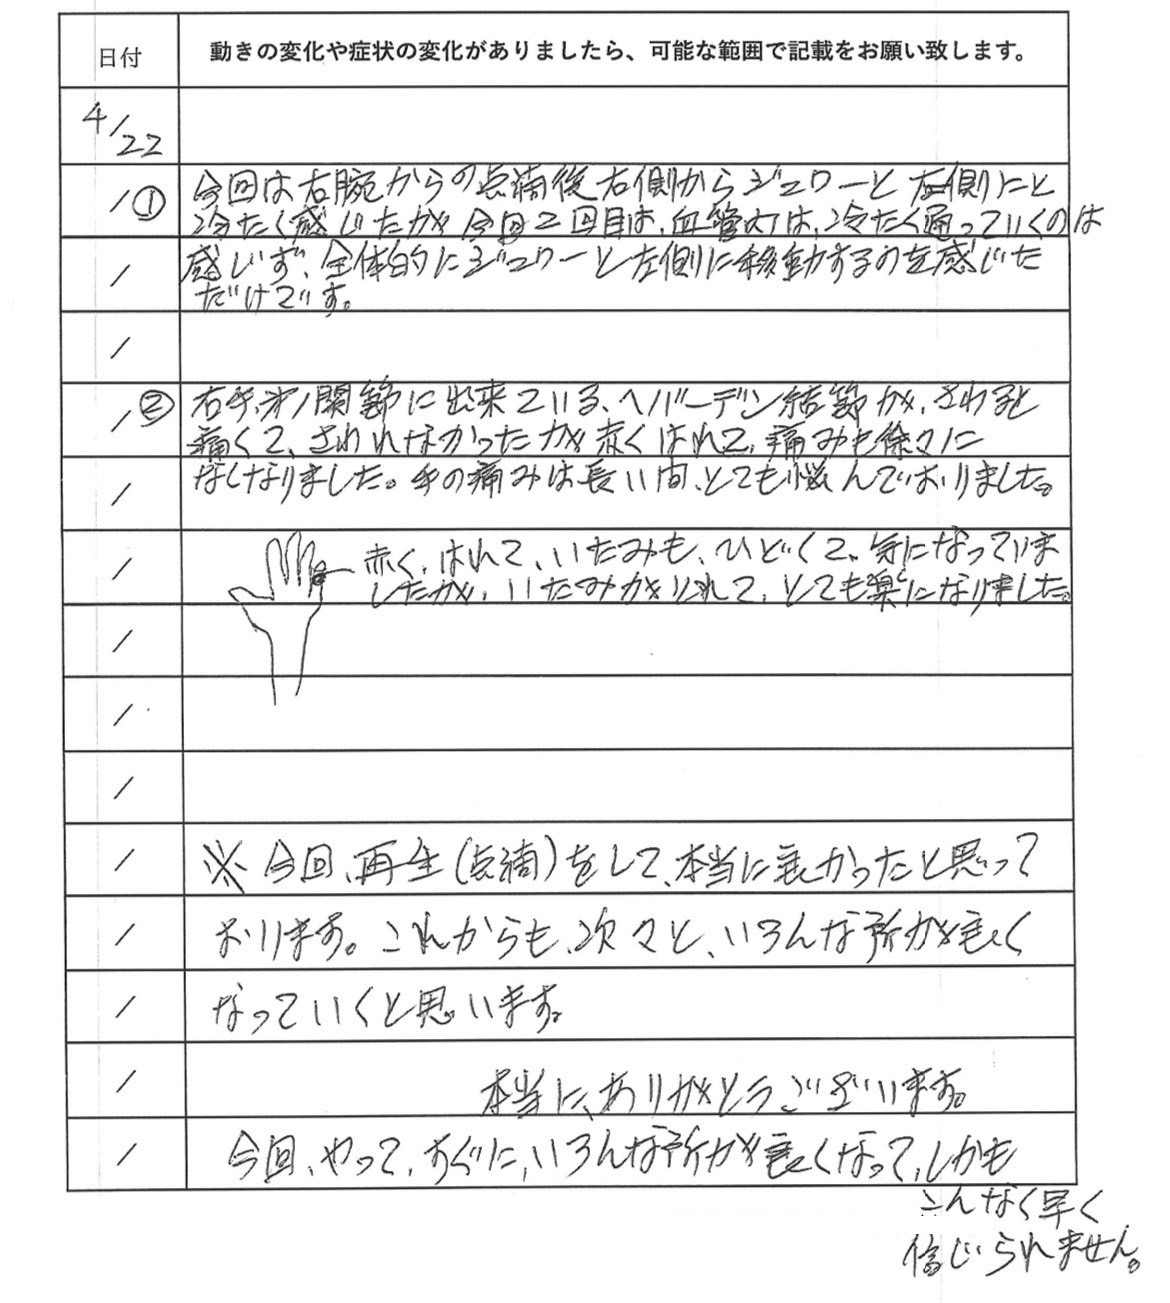 日付
動きの変化や症状の変化がありましたら、可能な範囲で記載をお願い致します。
4/22
/① 今回は右腕からの点滴後右側からジュワーと左側にと
冷たく感じたが今回2回目は、血管内は、冷たく通っていくのは
/ 感じず、全体的にジュワーと左側に移動するのを感じた
だけです。
/
/② 右手、第1関節に出来ている、ヘバーデン結節が、さわると
痛くて、さわれなかったが赤くはれて、痛みも徐々に
/ なくなりました。手の痛みは長い間、とても悩んでおりました。
/ 赤く、はれて、いたみも、ひどくて、気になっていま
したが、いたみがとれて、とても楽になりました。
/
/
/
/ ※今回、再生(点滴)をして、本当に良かったと思って
/ おります。これからも、次々と、いろんな所が良く
/ なっていくと思います。
/ 本当に、ありがとうございます。
/ 今回、やって、すぐに、いろんな所が良くなって、しかも
こんなく早く
信じられません。